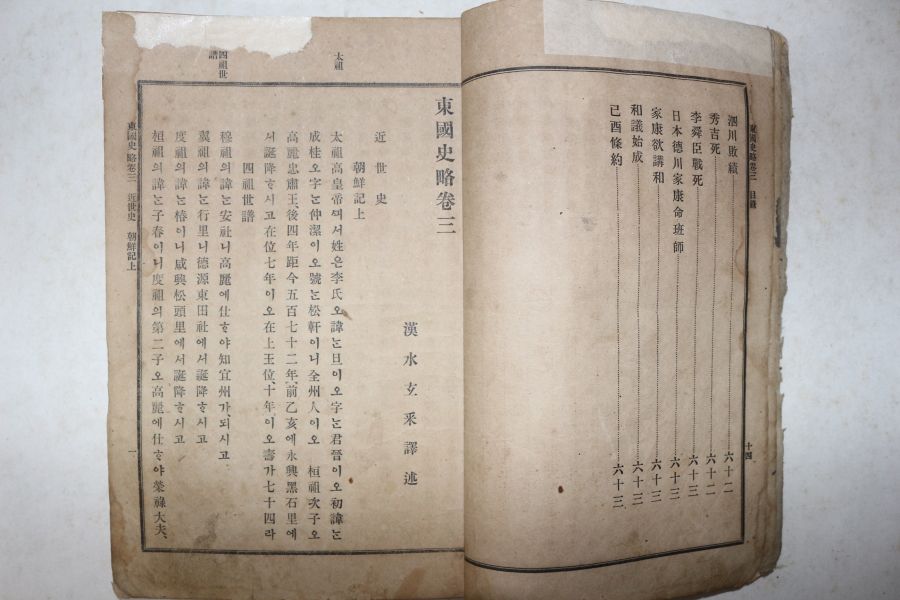 東國史略卷三 目錄
泗川敗績 六十二
秀吉死 六十二
李舜臣戰死 六十三
日本德川家康命班師 六十三
家康欲講和 六十三
和議始成 六十三
己酉條約 六十三
十四
東國史略卷三
漢水玄采譯述
近世史
朝鮮記上
太祖
太祖高皇帝끠셔姓은李氏오諱는旦이오字는君晉이오初諱는
成桂오字는仲潔이오號는松軒이니全州人이오 桓祖次子오
高麗忠肅王、後四年距今五百七十二年、前乙亥에永興黑石里에
셔誕降ᄒᆞ시고在位七年이오在上王位、十年、이오壽가七十四라
四祖世譜
四祖世譜
穆祖의諱는安社니高麗에仕ᄒᆞ야知宜州가、되시고
翼祖의諱는行里니德源東田社에셔誕降ᄒᆞ시고
度祖의諱는椿이니咸興松頭里에셔誕降ᄒᆞ시고
桓祖의諱는子春이니度祖의第二子오高麗에仕ᄒᆞ야榮祿大夫、
東國史略卷三 近世史 朝鮮記上 一